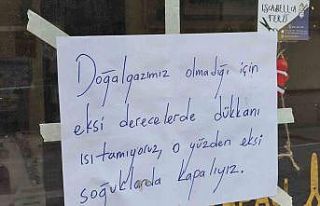 ISABELLIA
TERZİ
Doğalgazımız olmadığı için
eksi derecelerde dükkanı
ısıtamıyoruz, o yüzden eksi
soğuklarda kapalıyız.